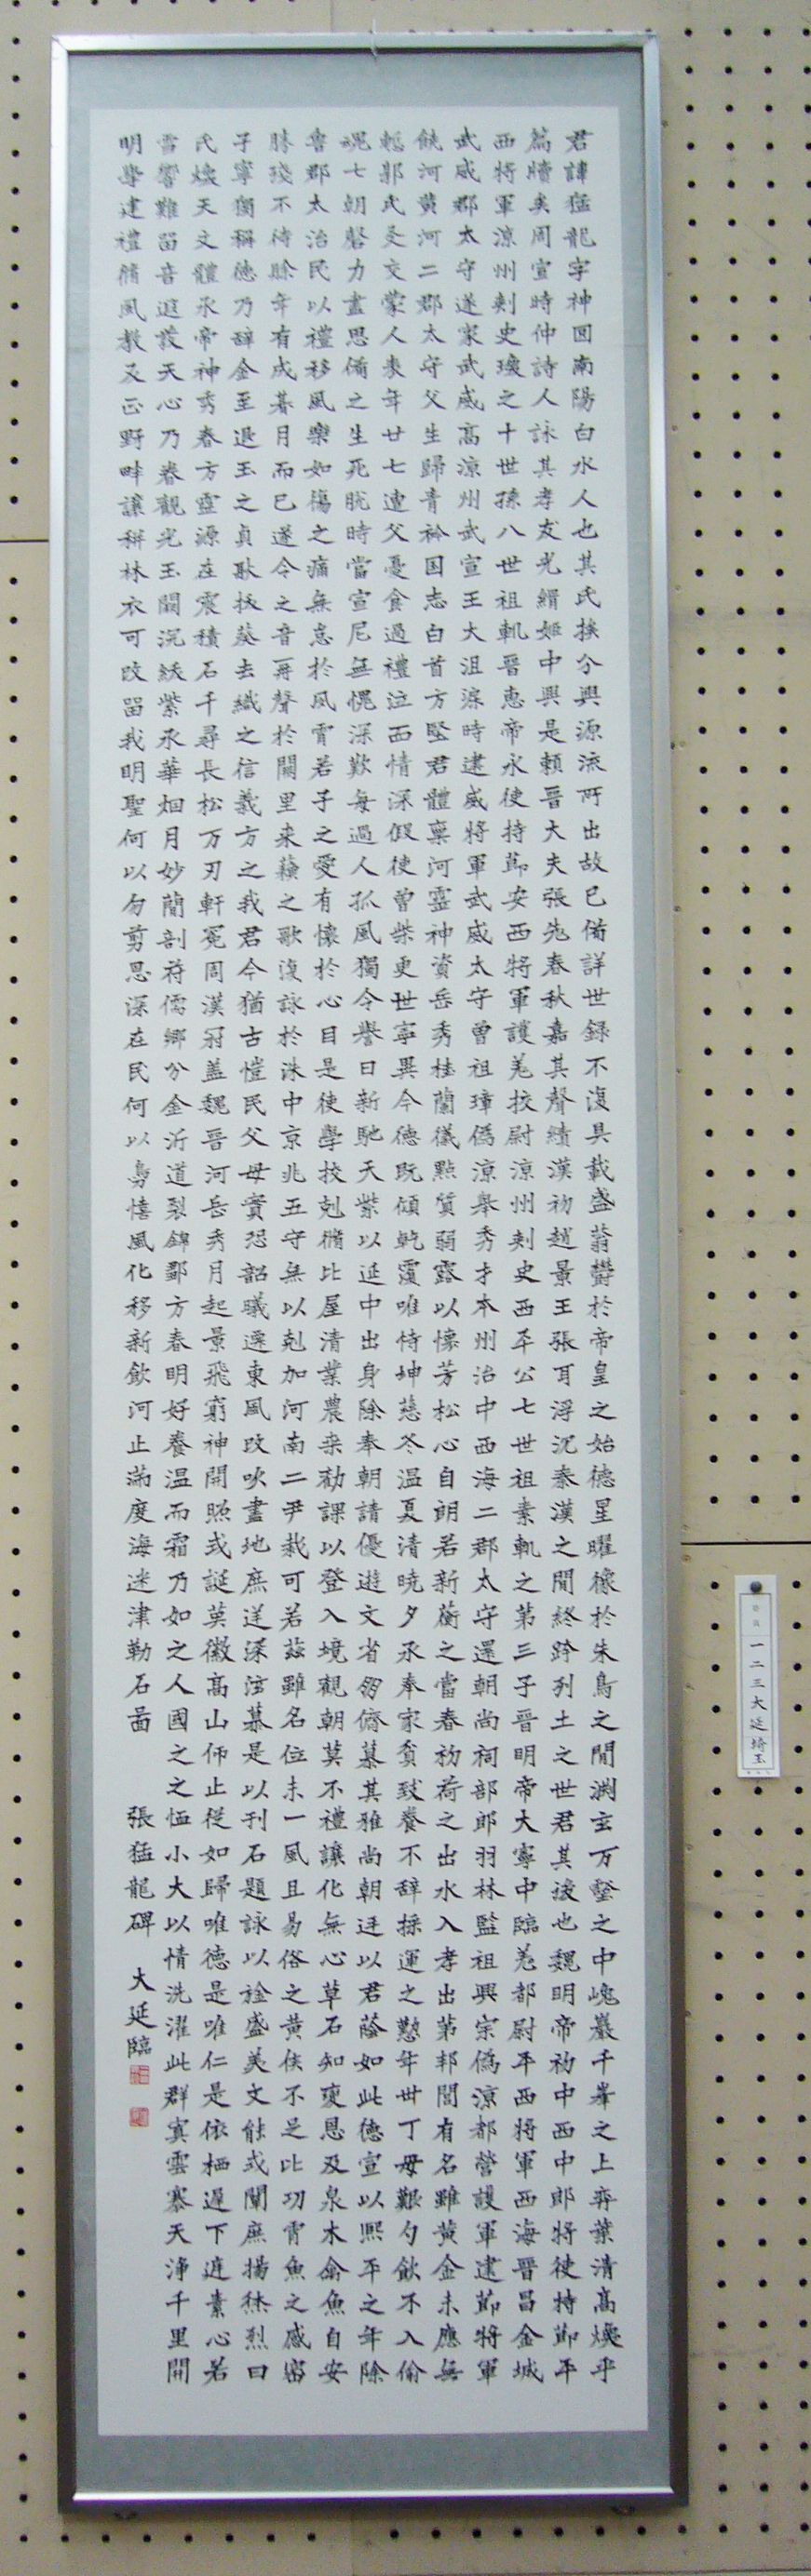 君諱猛龍字神囧南陽白水人也其氏挨分興源流所出故已備詳世録不復具載盛蓊欝於帝皇之始德星曜像於朱鳥之間渊玄万壑之中巉巖千峯之上弈葉清高煥乎
篇牘矣周宣時仲詩人詠其孝友光緝姫中興是賴晋大夫張老春秋嘉其聲績漢初趙景王張耳浮沉秦漢之間終跨列土之世君其後也魏明帝初中西中郎將使持節平
西將軍涼州刺史瑍之十世孫八世祖軌晉惠帝永使持節安西將軍護羌挍尉涼州刺史西平公七世祖素軌之第三子晉明帝大寧中臨羌都尉平西將軍西海晉昌金城
武威郡太守遂家武威高涼州武宣王大沮渠時建威將軍武威太守曾祖璋偽涼舉秀才本州治中西海二郡太守還朝尚祠部郎羽林監祖興宗偽涼都營護軍建節將軍
饒河黄河二郡太守父生歸青衿国志白首方堅君體稟河靈神資岳秀桂蘭儀點質弱露以懷芳松心自朗若新蘅之當春初荷之出水入孝出第邦閭有名雖黄金未應無
郭氏友交蒙人表年廿七遭父憂食過禮泣血情深假使曾柴更世寧異今德既傾乾覆唯恃坤慈冬温夏清暁夕承奉家貧致養不辞採運之懃年卅丁母艱勺飲不入偷
魂七朝磬力盡思備之生死脱時當宣尼無愧深歎每過人孤風獨令譽日新馳天紫以延中出身除奉朝請優遊文省朋儕慕其雅尚朝廷以君蔭如此德宣以熙平之年除
魯郡太治民以禮移風樂如傷之痛無怠於風宵若子之愛有懷於心目是使學挍剋脩比屋清業農桒勸課以登入境觀朝莫不禮讓化無心草石知變恩及泉木禽魚自安
勝殘不待賒年有成朞月而已遂令之音再聲於闕里来蘓之歌復詠於洙中京兆五守無以剋加河南二尹裁可若茲雖名位未一風且易俗之黄侯不足比功宵魚之感密
子寧獨稱德乃辞金至退玉之貞耿拔葵去織之信義方之我君今猶古愷民父母實恐韶曦遷東風改吹盡地庶送深泫慕是以刊石題詠以詮盛美文能或闡庶揚烋烈曰
氏煥天文體承帝神秀春方靈源在震積石千尋長松万刃軒冕周漢冠盖魏晉河岳秀月起景飛窮神開照式誕英徽高山仰止從如歸唯德是唯仁是依栖遲下遊素心若
雪響難留音遐設天心乃眷觀光玉闕浣紱紫承華烟月妙簡剖符儒鄉分金沂道裂錦鄒方春明好養温而霜乃如之人國之之恤小大以情洗濯此群冥雲褰天淨千里開
明學建禮脩風教反正野畔讓稱林衣可改留我明聖何以勿剪思深在民何以勗憘風化移新飲河止満度海迷津勒石啚
張猛龍碑 大延臨
一二三大延埼玉